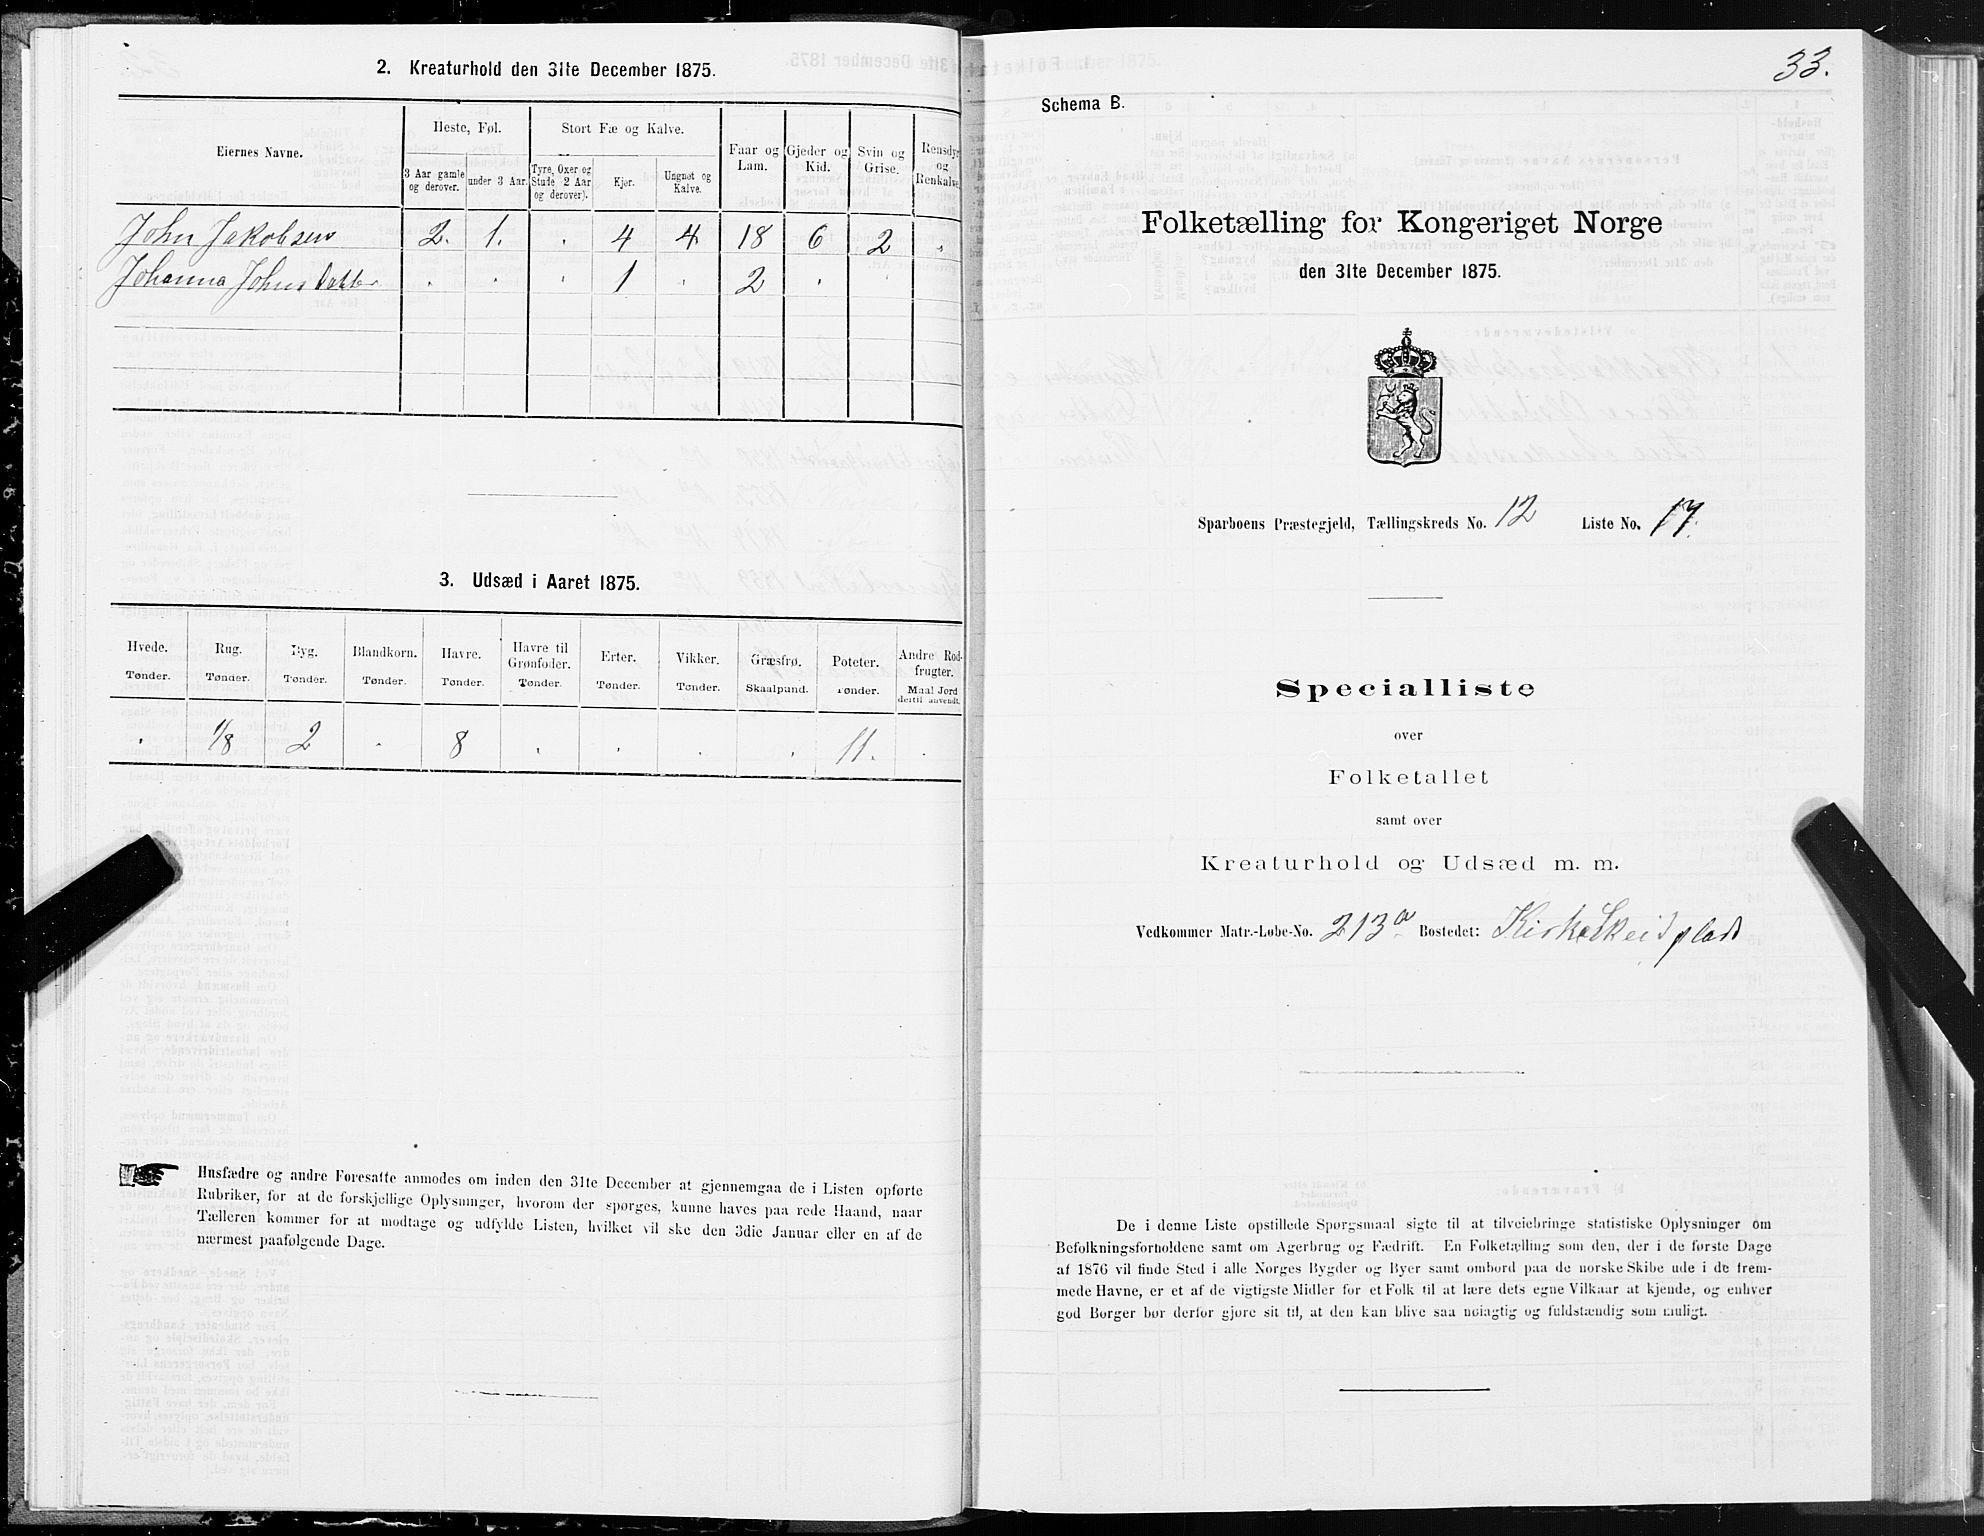 2. Kreaturhold den 31te December 1875.
Eiernes Navne.
Heste, Føl.
Stort Fæ og Kalve.
Faar og Lam.
Gjeder og Kid.
Svin og Grise.
Rensdyr og Renkalve.
3 Aar gamle og derover.
under 3 Aar.
Tyre, Oxer og Stude 2 Aar og derover).
Kjør.
Ungnøt og Kalve.
John Jakobsen 2. 1. . 4 4 18 6 2 "
Johanna Johnsdatter . . . 1 . 2 . .
3. Udsæd i Aaret 1875.
Hvede. Rug. Byg. Blandkorn. Havre. Havre til Grønfoder. Erter. Vikker. Græsfrø. Poteter. Andre Rodfrugter.
Tønder. Tønder. Tønder. Tønder. Tønder. Tønder. Tønder. Tønder. Skaalpund. Tønder. Maal Jord dertil anvendt.
. 1/8 2 . 8 . . . . 11. .
Husfædre og andre Foresatte anmodes om inden den 31te December at gjennemgaa de i Listen opførte
Rubriker, for at de forskjellige Oplysninger, hvorom der spørges, kunne haves paa rede Haand, naar
Tælleren kommer for at modtage og udfylde Listen, hvilket vil ske den 3die Januar eller en af de
nærmest paafølgende Dage.
33.
Schema B.
Folketælling for Kongeriget Norge
den 31te December 1875.
Sparboens Præstegjeld, Tællingskreds No. 12 Liste No. 17.
Specialliste
over
Folketallet
samt over
Kreaturhold og Udsæd m. m.
Vedkommer Matr.-Løbe-No. 213a Bostedet: KirkeSkeid plads
De i denne Liste opstillede Spørgsmaal sigte til at tilveiebringe statistiske Oplysninger om
Befolkningsforholdene samt om Agerbrug og Fædrift. En Folketælling som den, der i de første Dage
af 1876 vil finde Sted i alle Norges Bygder og Byer samt ombord paa de norske Skibe ude i de frem-
mede Havne, er et af de vigtigste Midler for et Folk til at lære dets egne Vilkaar at kjende, og enhver
god Borger bør derfor gjøre sit til, at den kan blive saa nøiagtig og fuldstændig som muligt.